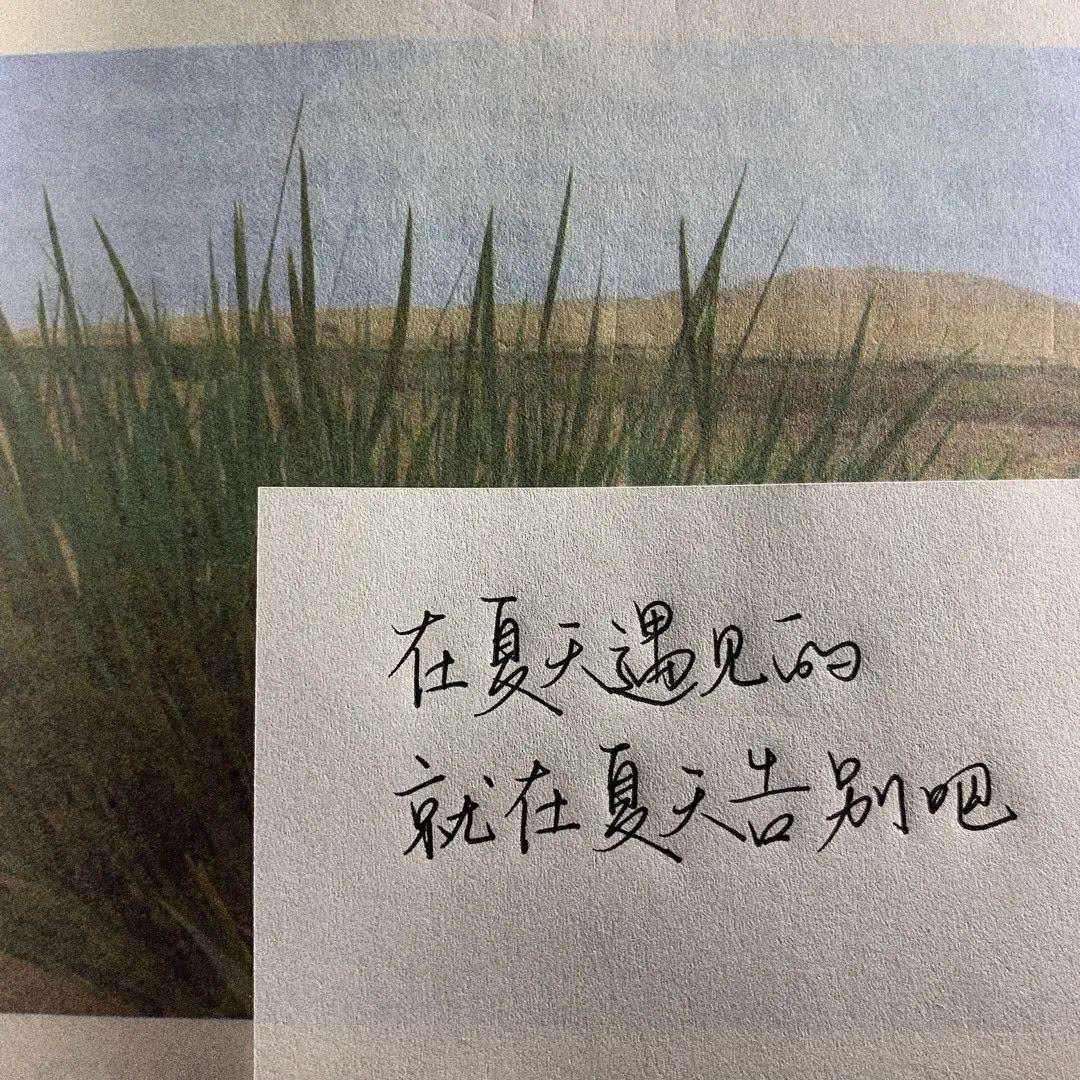 在夏天遇见的
就在夏天告别吧